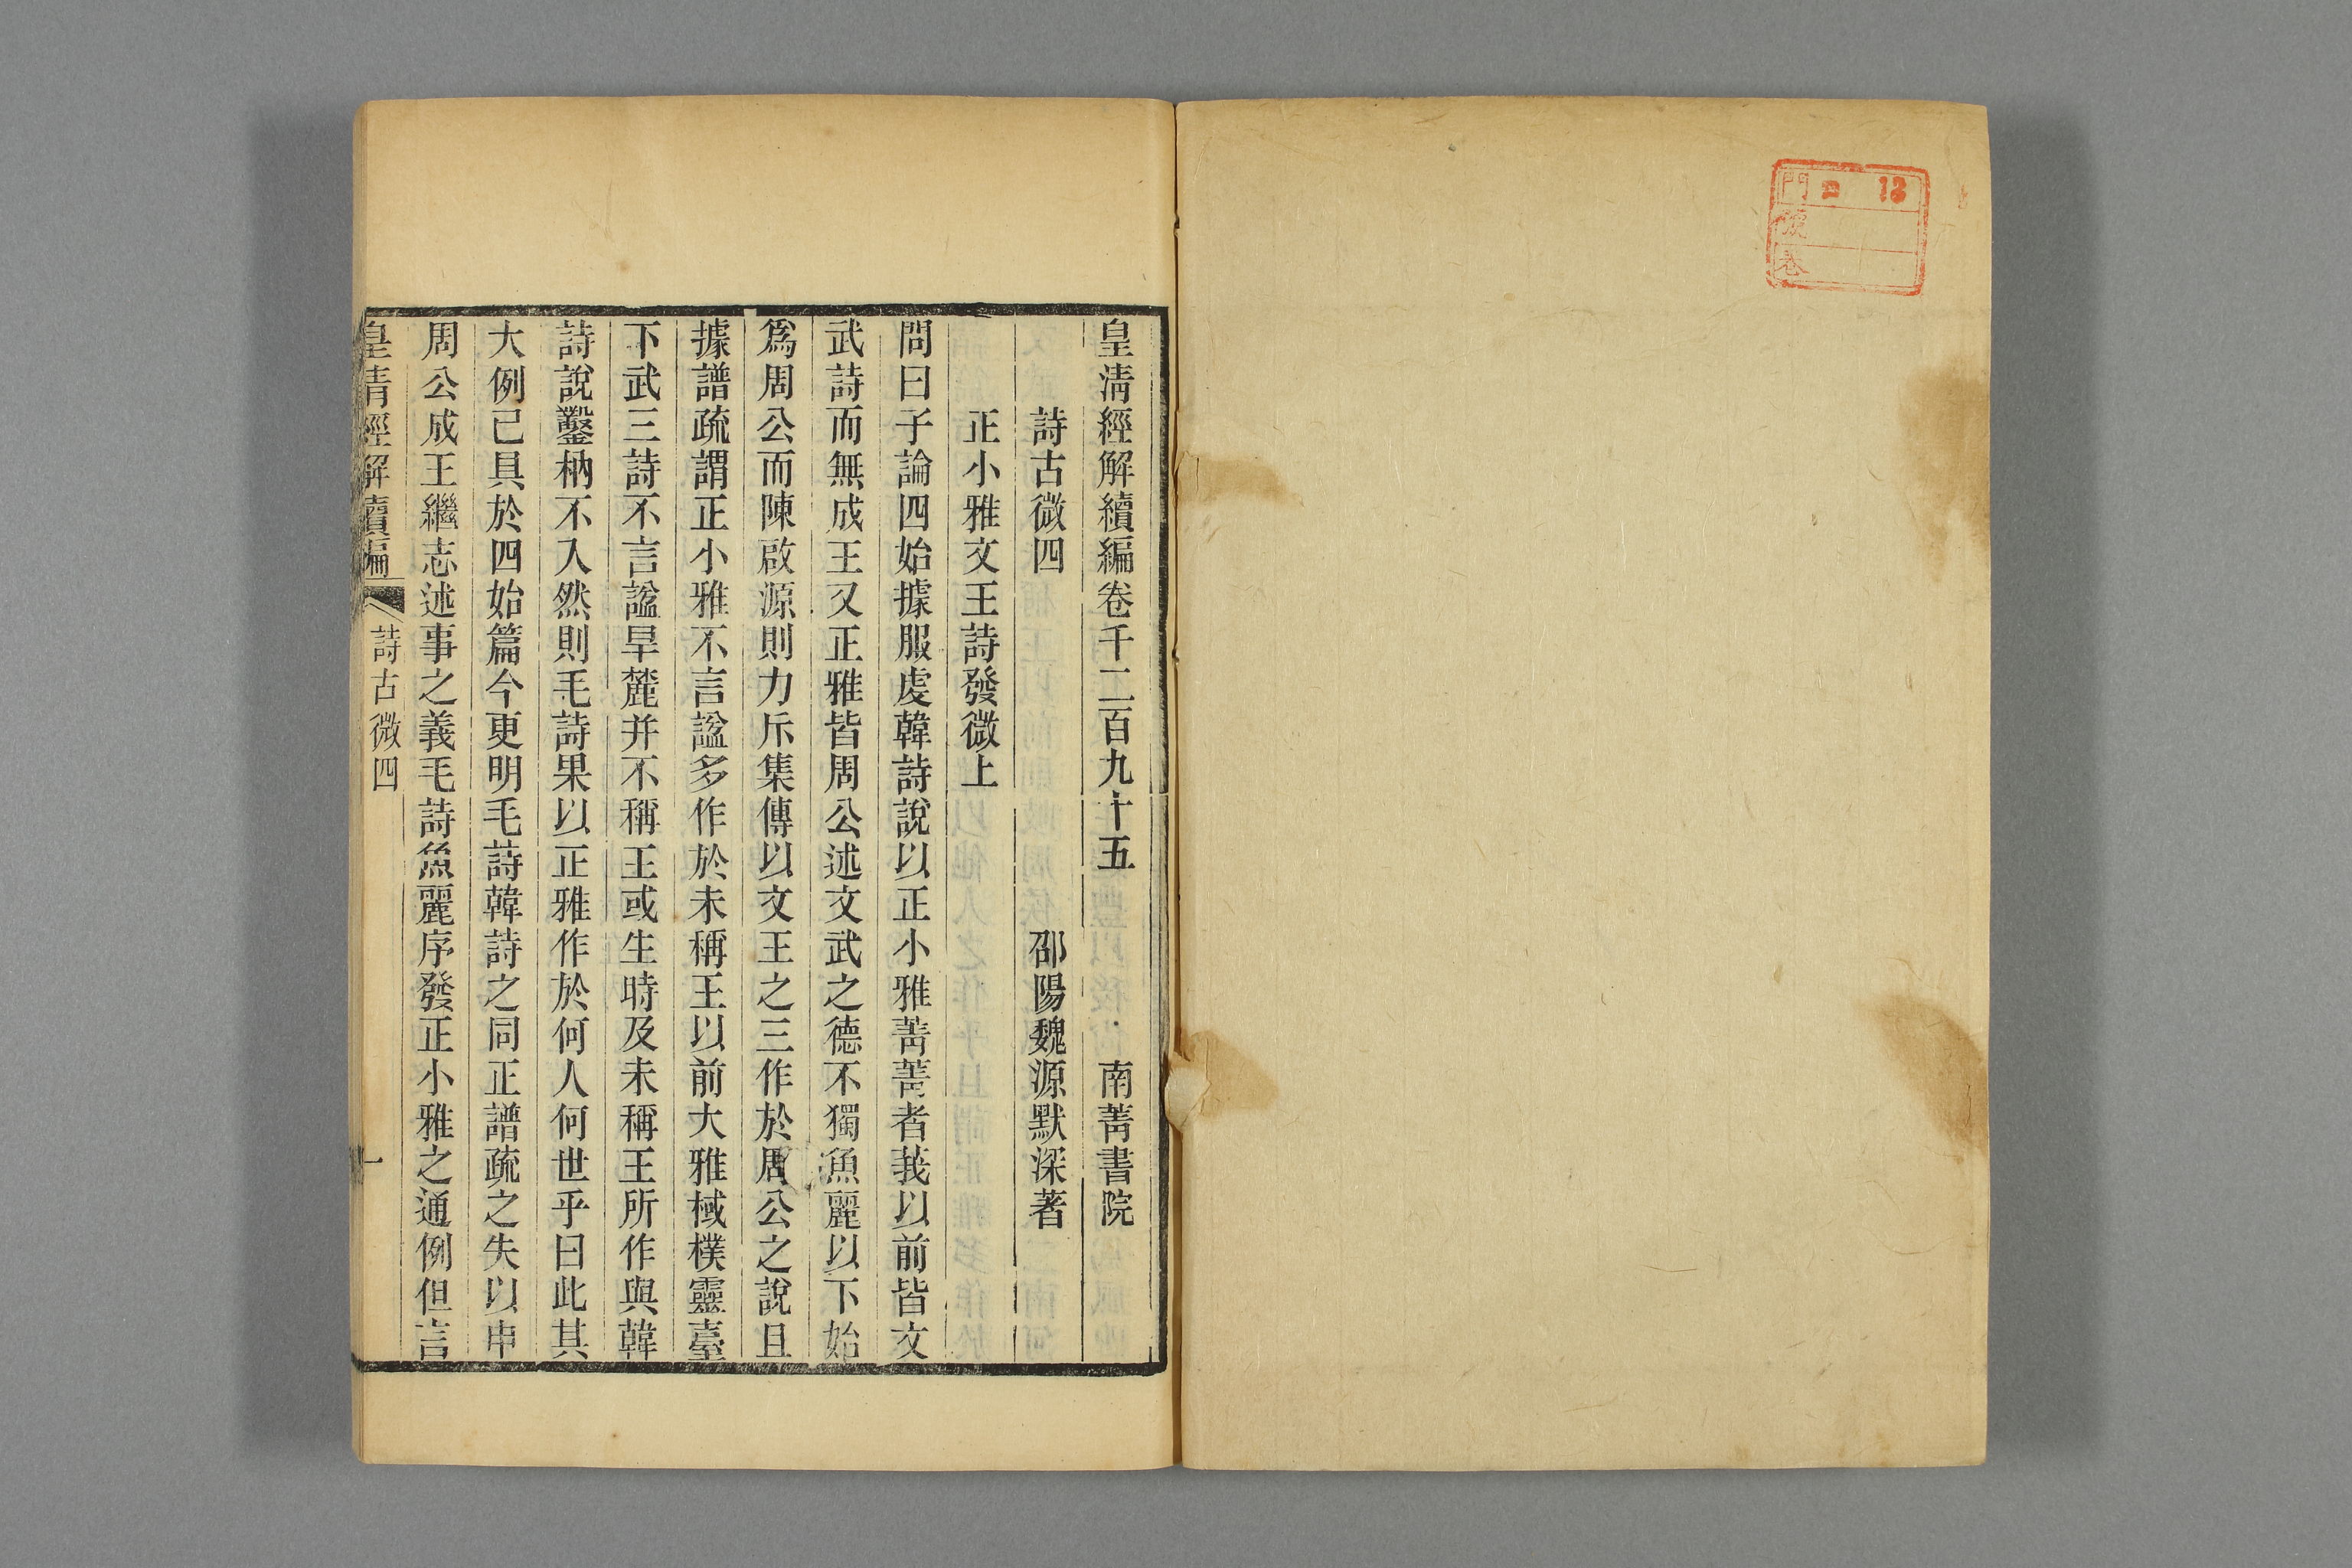 門 二 13
號
卷
皇清經解續編卷千二百九十五 南菁書院
詩古微四 邵陽魏源默深著
正小雅文王詩發微上
問曰子論四始據服虔韓詩說以正小雅菁菁者莪以前皆文
武詩而無成王又正雅皆周公述文武之德不獨魚麗以下始
爲周公而陳啟源則力斥集傳以文王之三作於周公之說且
據譜疏謂正小雅不言諡多作於未稱王以前大雅棫樸靈臺
下武三詩不言諡旱麓并不稱王或生時及未稱王所作與韓
詩說鑿枘不入然則毛詩果以正雅作於何人何世乎曰此其
大例已具於四始篇今更明毛詩韓詩之同正譜疏之失以申
周公成王繼志述事之義毛詩魚麗序發正小雅之通例但言
皇清經解續編 詩古微四 一